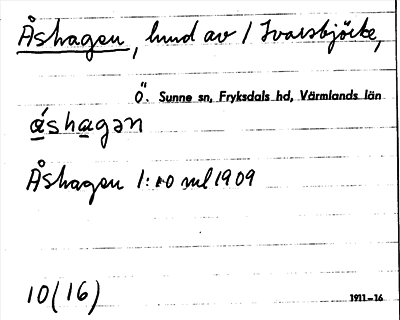 Åshagen, hmd av 1 Ivarsbjörke,
Ö. Sunne sn, Fryksdals hd, Värmlands län
áshagən
Åshagen 1:10 ml 1909
10(16)
1911–16